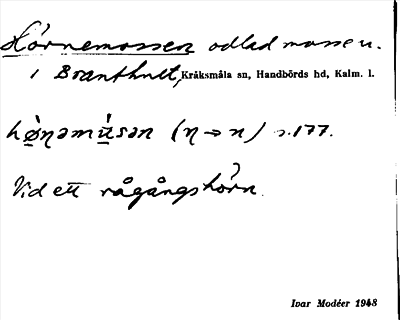 Hörnemossen odlad mosse u.
i Branthult, Kråksmåla sn, Handbörds hd, Kalm. l.
hø̀ŋəmú̠sən (ŋ → n) s. 177.
Vid ett rågångshörn.
Ivar Modéer 1948